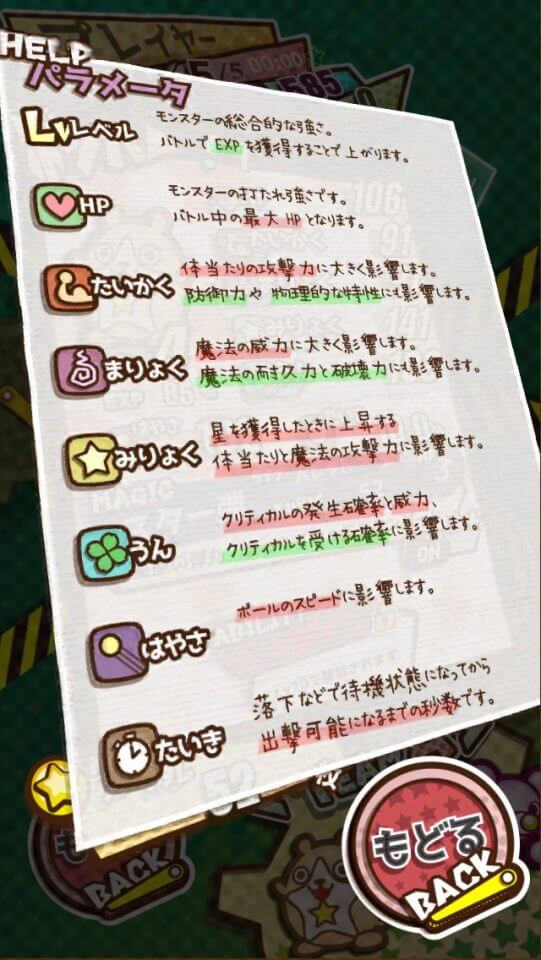 プレイヤー
5/5 00:00
585
HELP
パラメータ
Lvレベル
モンスターの総合的な強さ。
バトルで EXP を獲得することで 上がります。
HP
モンスターの打たれ強さです。
バトル中の最大 HP となります。
たいかく
体当たりの攻撃力に大きく影響します。
防御力や 物理的な特性にも影響します。
まりょく
魔法の威力に大きく影響します。
魔法の耐久力と破壊力にも影響します。
みりょく
星を獲得したときに上昇する
体当たりと魔法の攻撃力に影響します。
うん
クリティカルの発生確率と威力、
クリティカルを受ける確率に影響します。
はやさ
ボールのスピードに影響します。
たいき
落下などで待機状態になってから
出撃可能になるまでの秒数です。
52
TEAM
もどる
BACK
BACK